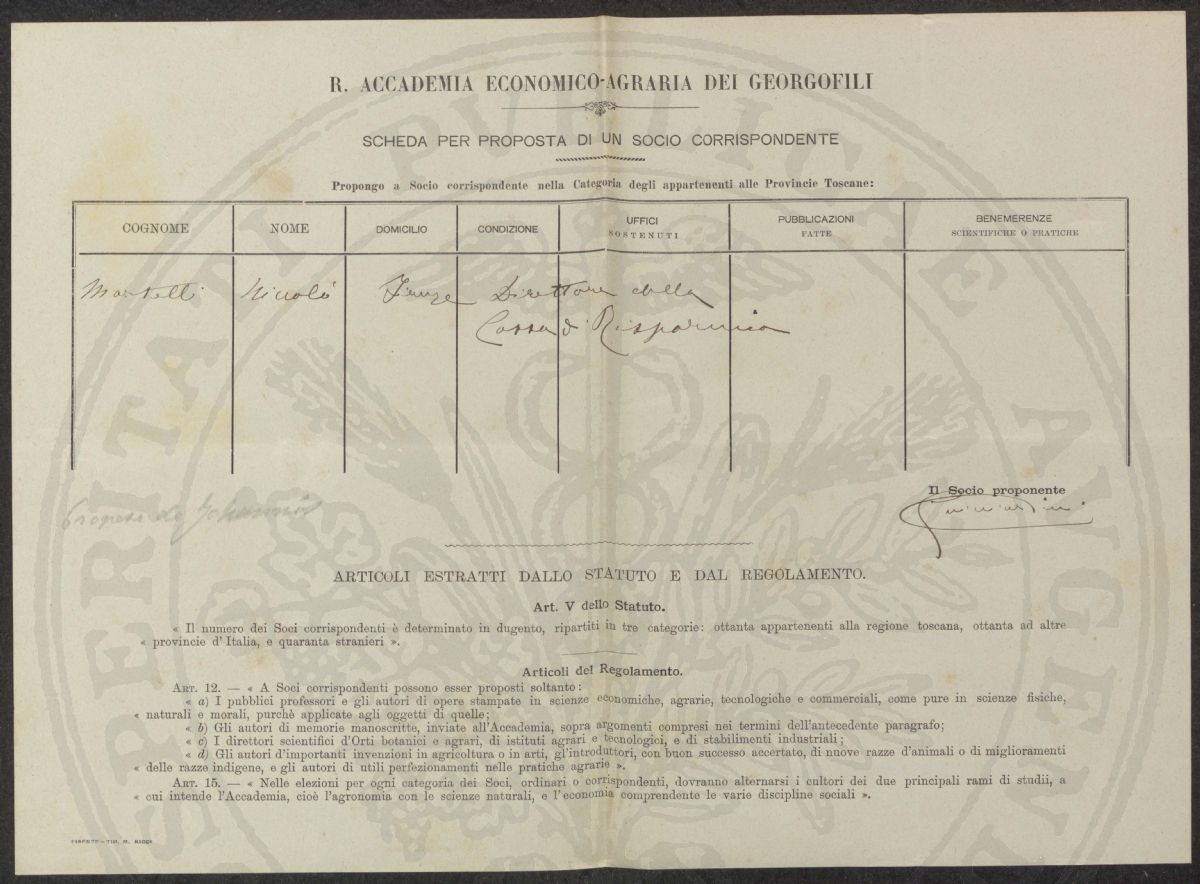 R. ACCADEMIA ECONOMICO-AGRARIA DEI GEORGOFILI
SCHEDA PER PROPOSTA DI UN SOCIO CORRISPONDENTE
Propongo a Socio corrispondente nella Categoria degli appartenenti alle Provincie Toscane:
COGNOME
NOME
DOMICILIO
CONDIZIONE
UFFICI
SOSTENUTI
PUBBLICAZIONI
FATTE
BENEMERENZE
SCIENTIFICHE O PRATICHE
Martelli Niccolò Firenze Direttore della
Cassa di Risparmio
Il Socio proponente
ARTICOLI ESTRATTI DALLO STATUTO E DAL REGOLAMENTO.
Art. V dello Statuto.
« Il numero dei Soci corrispondenti è determinato in dugento, ripartiti in tre categorie: ottanta appartenenti alla regione toscana, ottanta ad altre
« provincie d'Italia, e quaranta stranieri ».
Articoli del Regolamento.
ART. 12. — « A Soci corrispondenti possono esser proposti soltanto:
« a) I pubblici professori e gli autori di opere stampate in scienze economiche, agrarie, tecnologiche e commerciali, come pure in scienze fisiche,
« naturali e morali, purchè applicate agli oggetti di quelle;
« b) Gli autori di memorie manoscritte, inviate all'Accademia, sopra argomenti compresi nei termini dell'antecedente paragrafo;
« c) I direttori scientifici d'Orti botanici e agrari, di istituti agrari e tecnologici, e di stabilimenti industriali;
« d) Gli autori d'importanti invenzioni in agricoltura o in arti, gl'introduttori, con buon successo accertato, di nuove razze d'animali o di miglioramenti
« delle razze indigene, e gli autori di utili perfezionamenti nelle pratiche agrarie ».
ART. 15. — « Nelle elezioni per ogni categoria dei Soci, ordinari o corrispondenti, dovranno alternarsi i cultori dei due principali rami di studii, a
« cui intende l'Accademia, cioè l'agronomia con le scienze naturali, e l'economia comprendente le varie discipline sociali ».
FIRENZE - TIP. M. RICCI